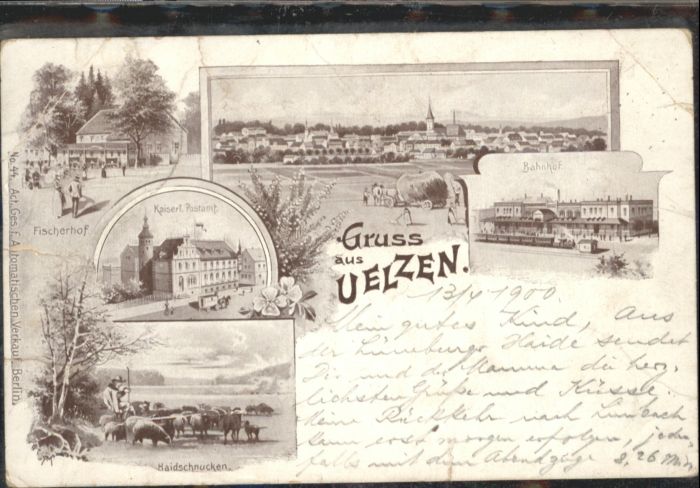 Bahnhof.
Kaiserl. Postamt.
Fischerhof.
Gruss
aus
UELZEN.
Haidschnucken.
No. 44. Act. Ges. f. Automatischen Verkauf, Berlin.
13/4 1900.
Mein gutes Kind, Aus
der Lüneburger Haide sendet
Dir und der Mamma die herz-
lichsten Grüße und Küsse.
Meine Rückkehr nach
kann erst morgen erfolgen, jeden-
falls mit dem Abendzuge 8,26 Min